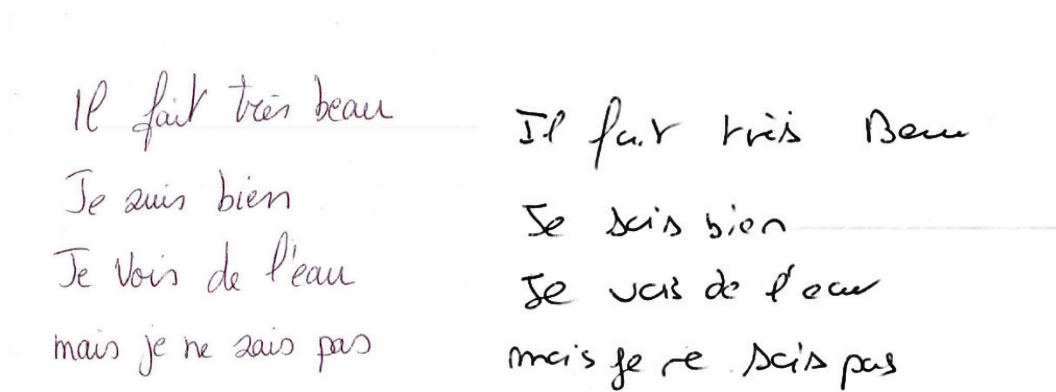 Il fait très beau
Je suis bien
Je vois de l'eau
mais je ne sais pas
Il fait très Beau
Je suis bien
Je vois de l'eau
mais je ne sais pas